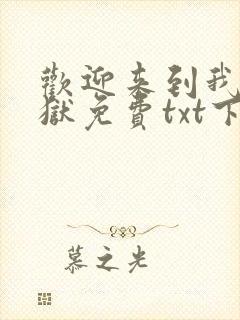 歡迎来到我
獄免費txt下
慕之光